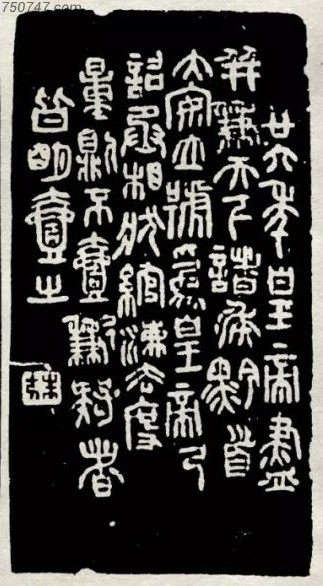 750747.com
廿六年皇帝盡
并兼天下諸侯黔首
大安立號為皇帝乃
詔丞相狀綰灋度
量則不壹歉疑者
皆明壹之